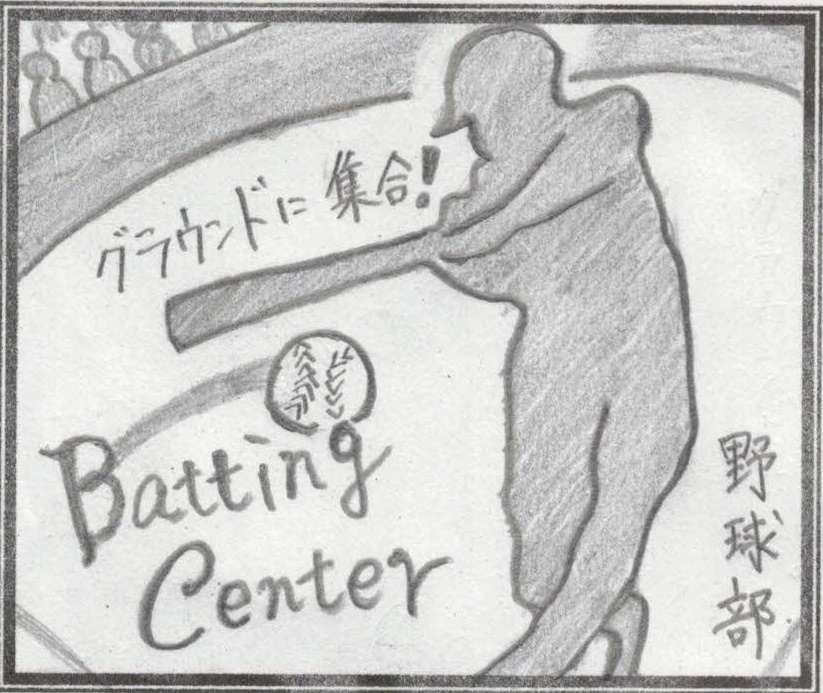 グラウンドに集合!
Batting
Center
野球部